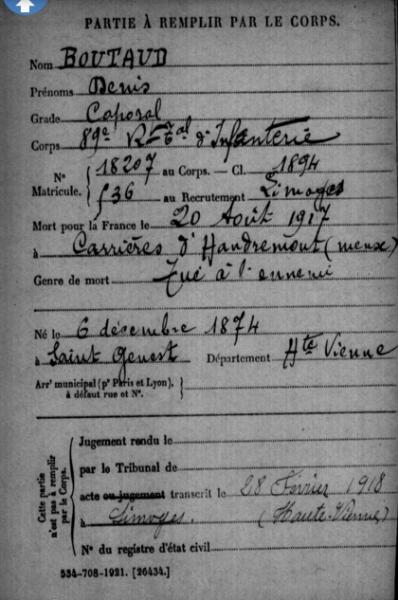 PARTIE À REMPLIR PAR LE CORPS.
Nom BOUTAUD
Prénoms Denis
Grade Caporal
Corps 89e R d'Infanterie
N° Matricule. { 18207 au Corps. — Cl. 1894
536 au Recrutement Limoges
Mort pour la France le 20 Août 1917
à Carrières d'Haudremont (meuse)
Genre de mort Tué à l'ennemi
Né le 6 décembre 1874
à Saint Genest Département Hte Vienne
Arrt municipal (pr Paris et Lyon), à défaut rue et N°. {
Cette partie n'est pas à remplir par le Corps.
Jugement rendu le
par le Tribunal de
acte ou jugement transcrit le 28 Février 1918
à Limoges. (Haute-Vienne)
N° du registre d'état civil
534-708-1921. [26434.]